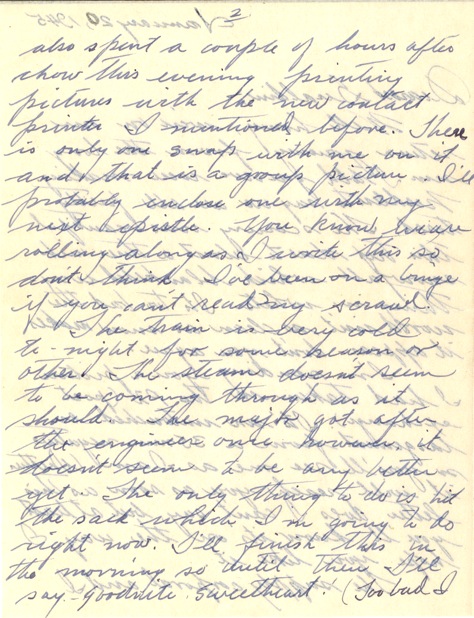 2
also spent a couple of hours after
chow this evening printing
pictures with the new contact
printer I mentioned before. There
is only one snap with me on it
and that is a group picture. I'll
probably enclose one with my
next epistle. You know we are
rolling along as I write this so
dont think I've been on a binge
if you can't read my scrawl.
The train is very cold
to-night for some reason or
other. The steam doesn't seem
to be coming through as it
should. The major got after
the engineer once however it
doesn't seem to be any better
yet. The only thing to do is hit
the sack which I'm going to do
right now. I'll finish this in
the morning so until then I'll
say goodnite sweetheart! (Too bad I